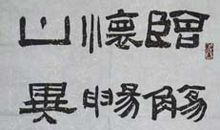 臨懷山
觴暢異